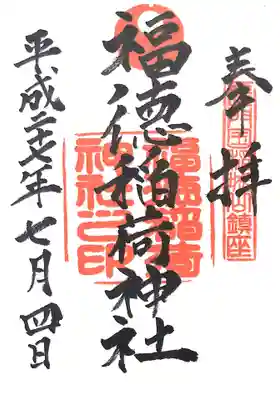 奉拝
鎮座
福徳稲荷神社
福徳稲荷
神社之印
平成二十七年七月四日